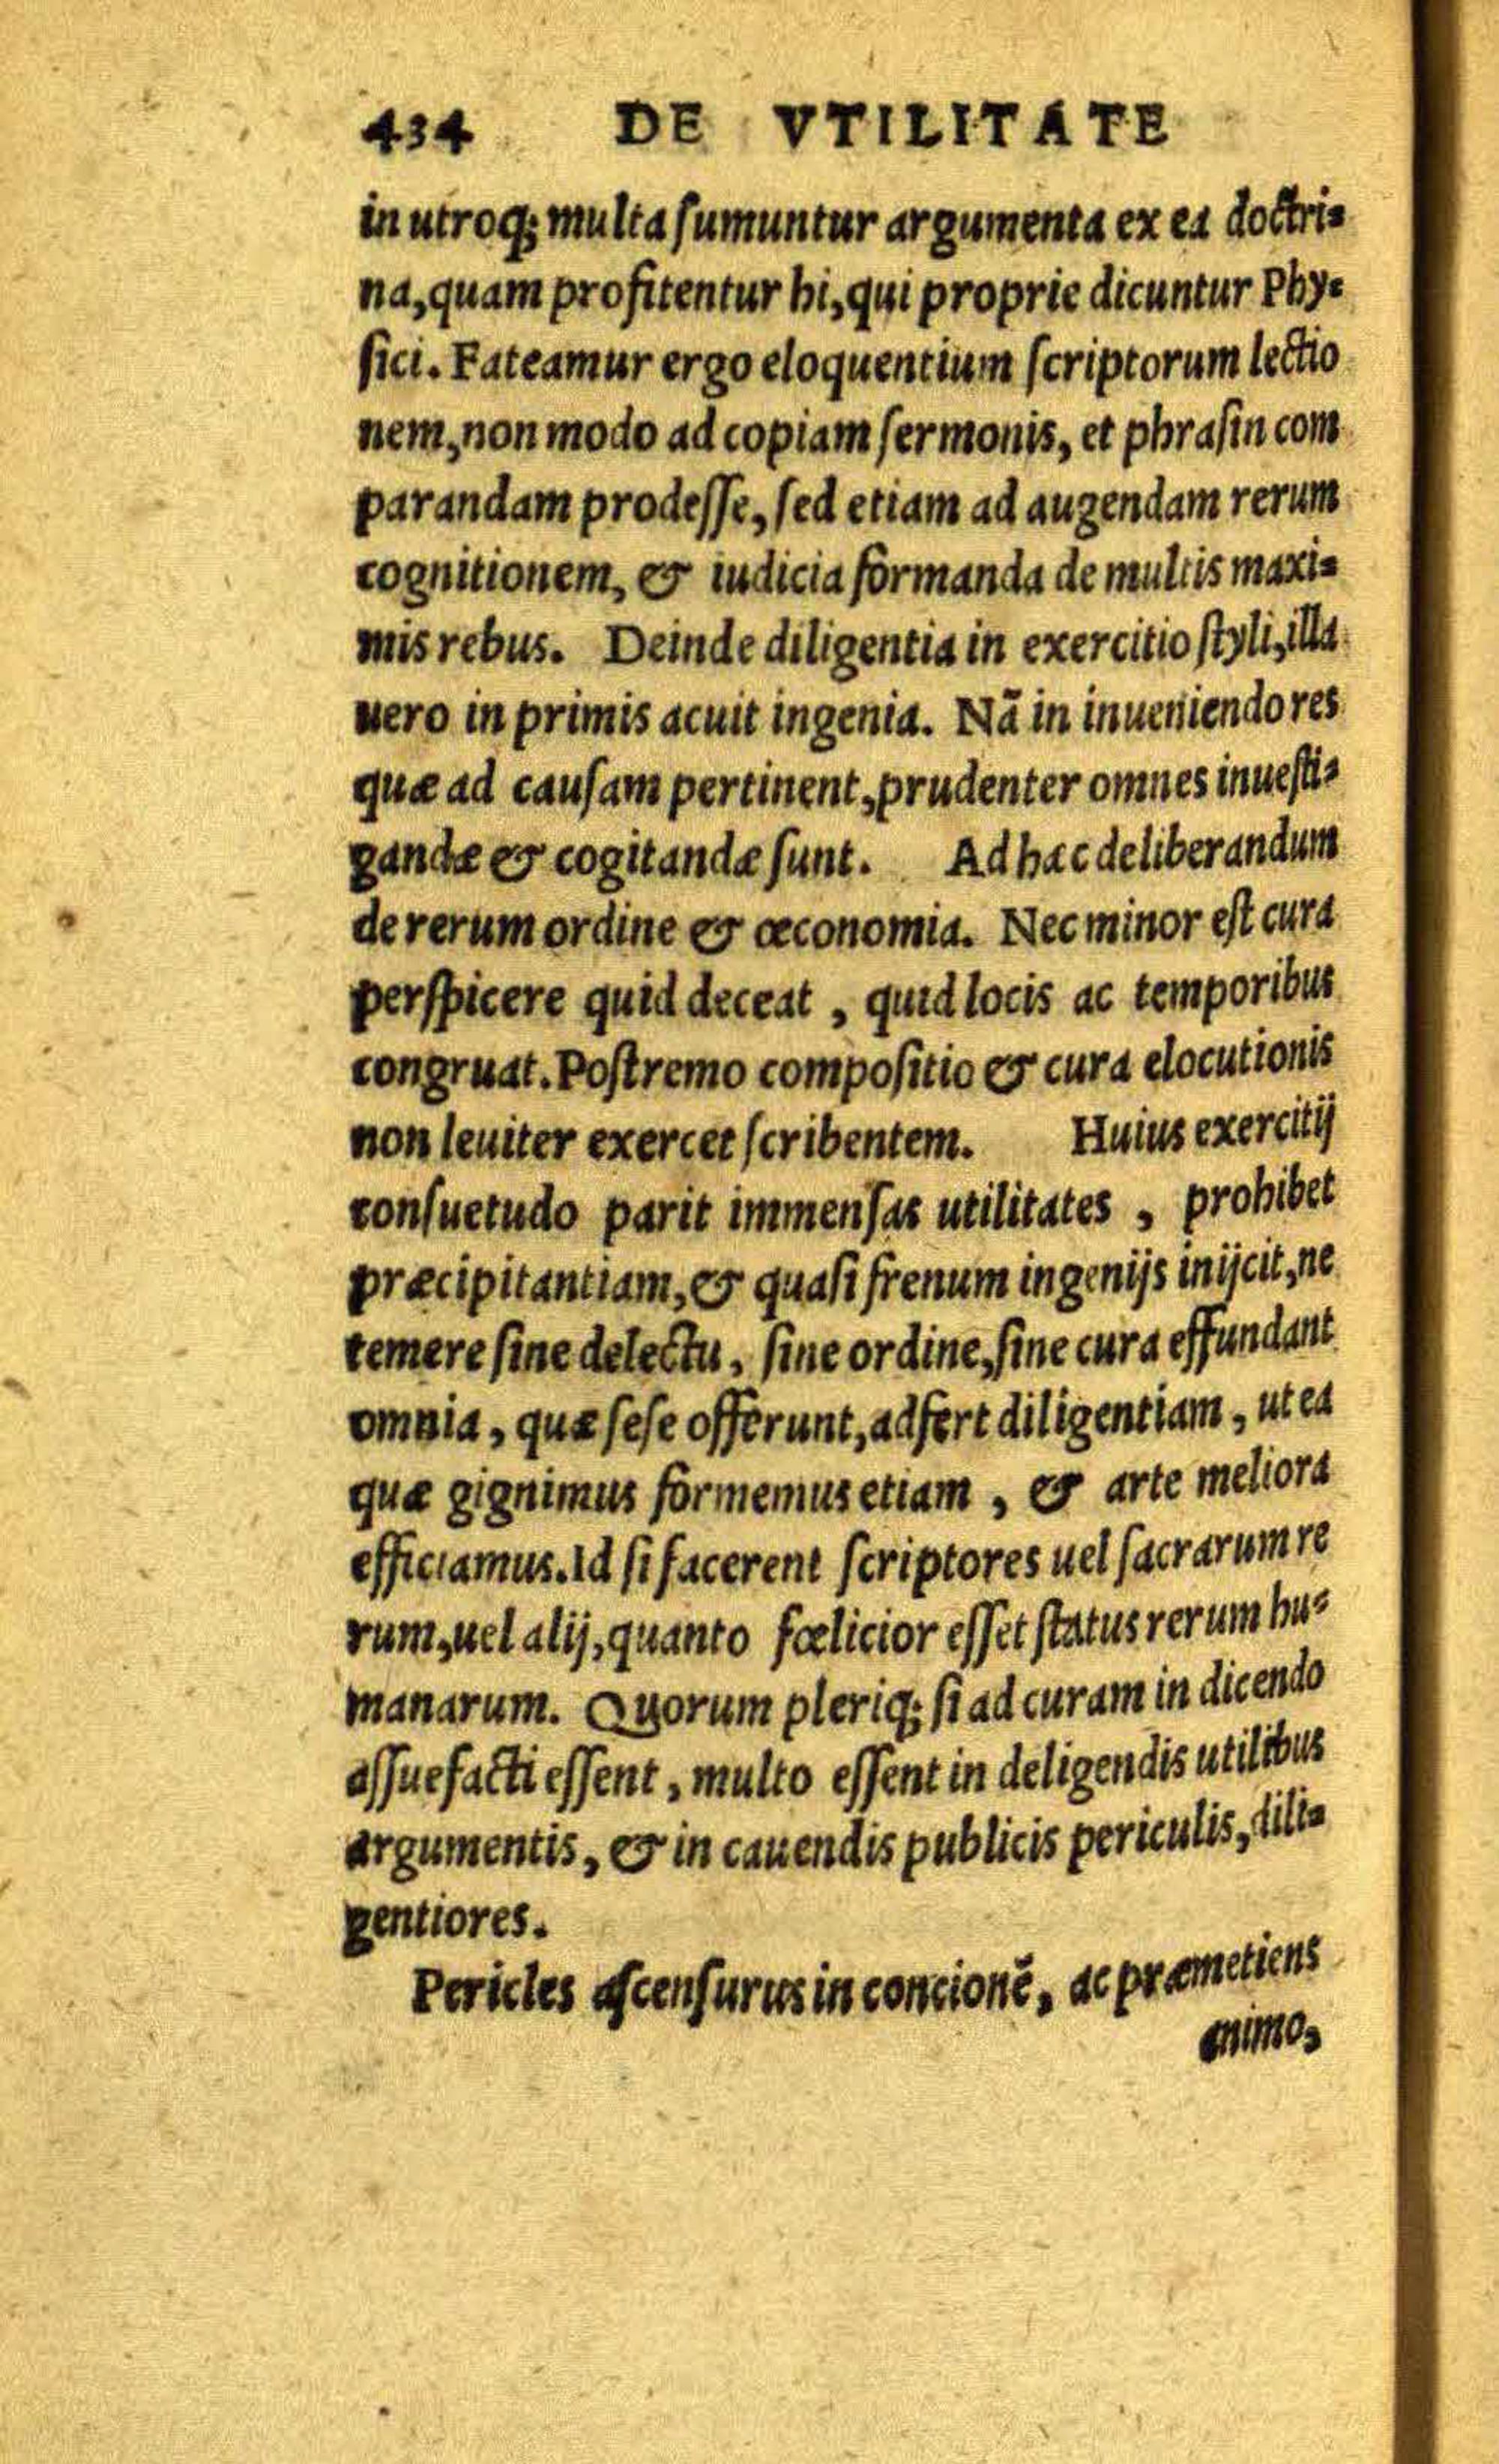 434 DE VTILITATE
in utroq; multa ſumuntur argumenta ex ea doctri-
na, quam profitentur hi, qui proprie dicuntur Phy-
ſici. Fateamur ergo eloquentium ſcriptorum lectio
nem, non modo ad copiam ſermonis, et phraſin com
parandam prodeſſe, ſed etiam ad augendam rerum
cognitionem, & iudicia formanda de multis maxi-
mis rebus. Deinde diligentia in exercitio ſtyli, illa
uero in primis acuit ingenia. Nā in inueniendo res
quæ ad cauſam pertinent, prudenter omnes inueſti-
gandæ & cogitandæ ſunt. Ad hæc deliberandum
de rerum ordine & œconomia. Nec minor eſt cura
perſpicere quid deceat, quid locis ac temporibus
congruat. Poſtremo compoſitio & cura elocutionis
non leuiter exercet ſcribentem. Huius exercitij
conſuetudo parit immenſas utilitates, prohibet
præcipitantiam, & quaſi frenum ingenijs inijcit, ne
temere ſine delectu, ſine ordine, ſine cura effundant
omnia, quæ ſeſe offerunt, adfert diligentiam, ut ea
quæ gignimus formemus etiam, & arte meliora
efficiamus. Id ſi facerent ſcriptores uel ſacrarum re
rum, uel alij, quanto fœlicior eſſet ſtatus rerum hu-
manarum. Quorum pleriq; ſi ad curam in dicendo
aſſuefacti eſſent, multo eſſent in deligendis utilibus
argumentis, & in cauendis publicis periculis, dili-
gentiores.
Pericles aſcenſurus in concionē, ac præmetiens
animo,